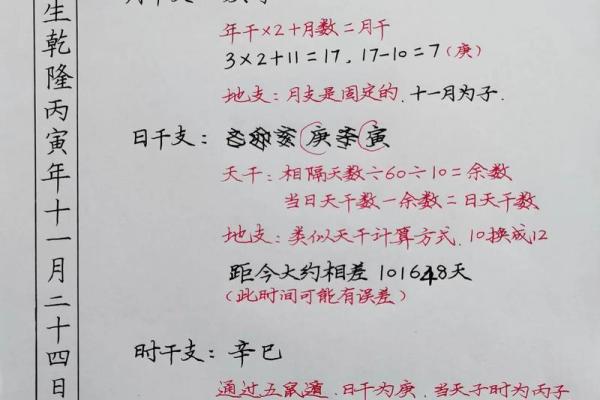 生乾隆丙寅年十一月二十四日
年干×2+月数=月干
3×2+11=17，17-10=7(庚)
地支：月支是固定的，十一月为子.
日干支： 庚 寅
天干：相隔天数÷60÷10=余数
当日天干数-余数=日天干数
地支：类似天干计算方式，10换成12
距今大约相差101648天
(此时间可能有误差)
时干支：辛巳
通过五鼠遁，日干为庚，当天子时为丙子